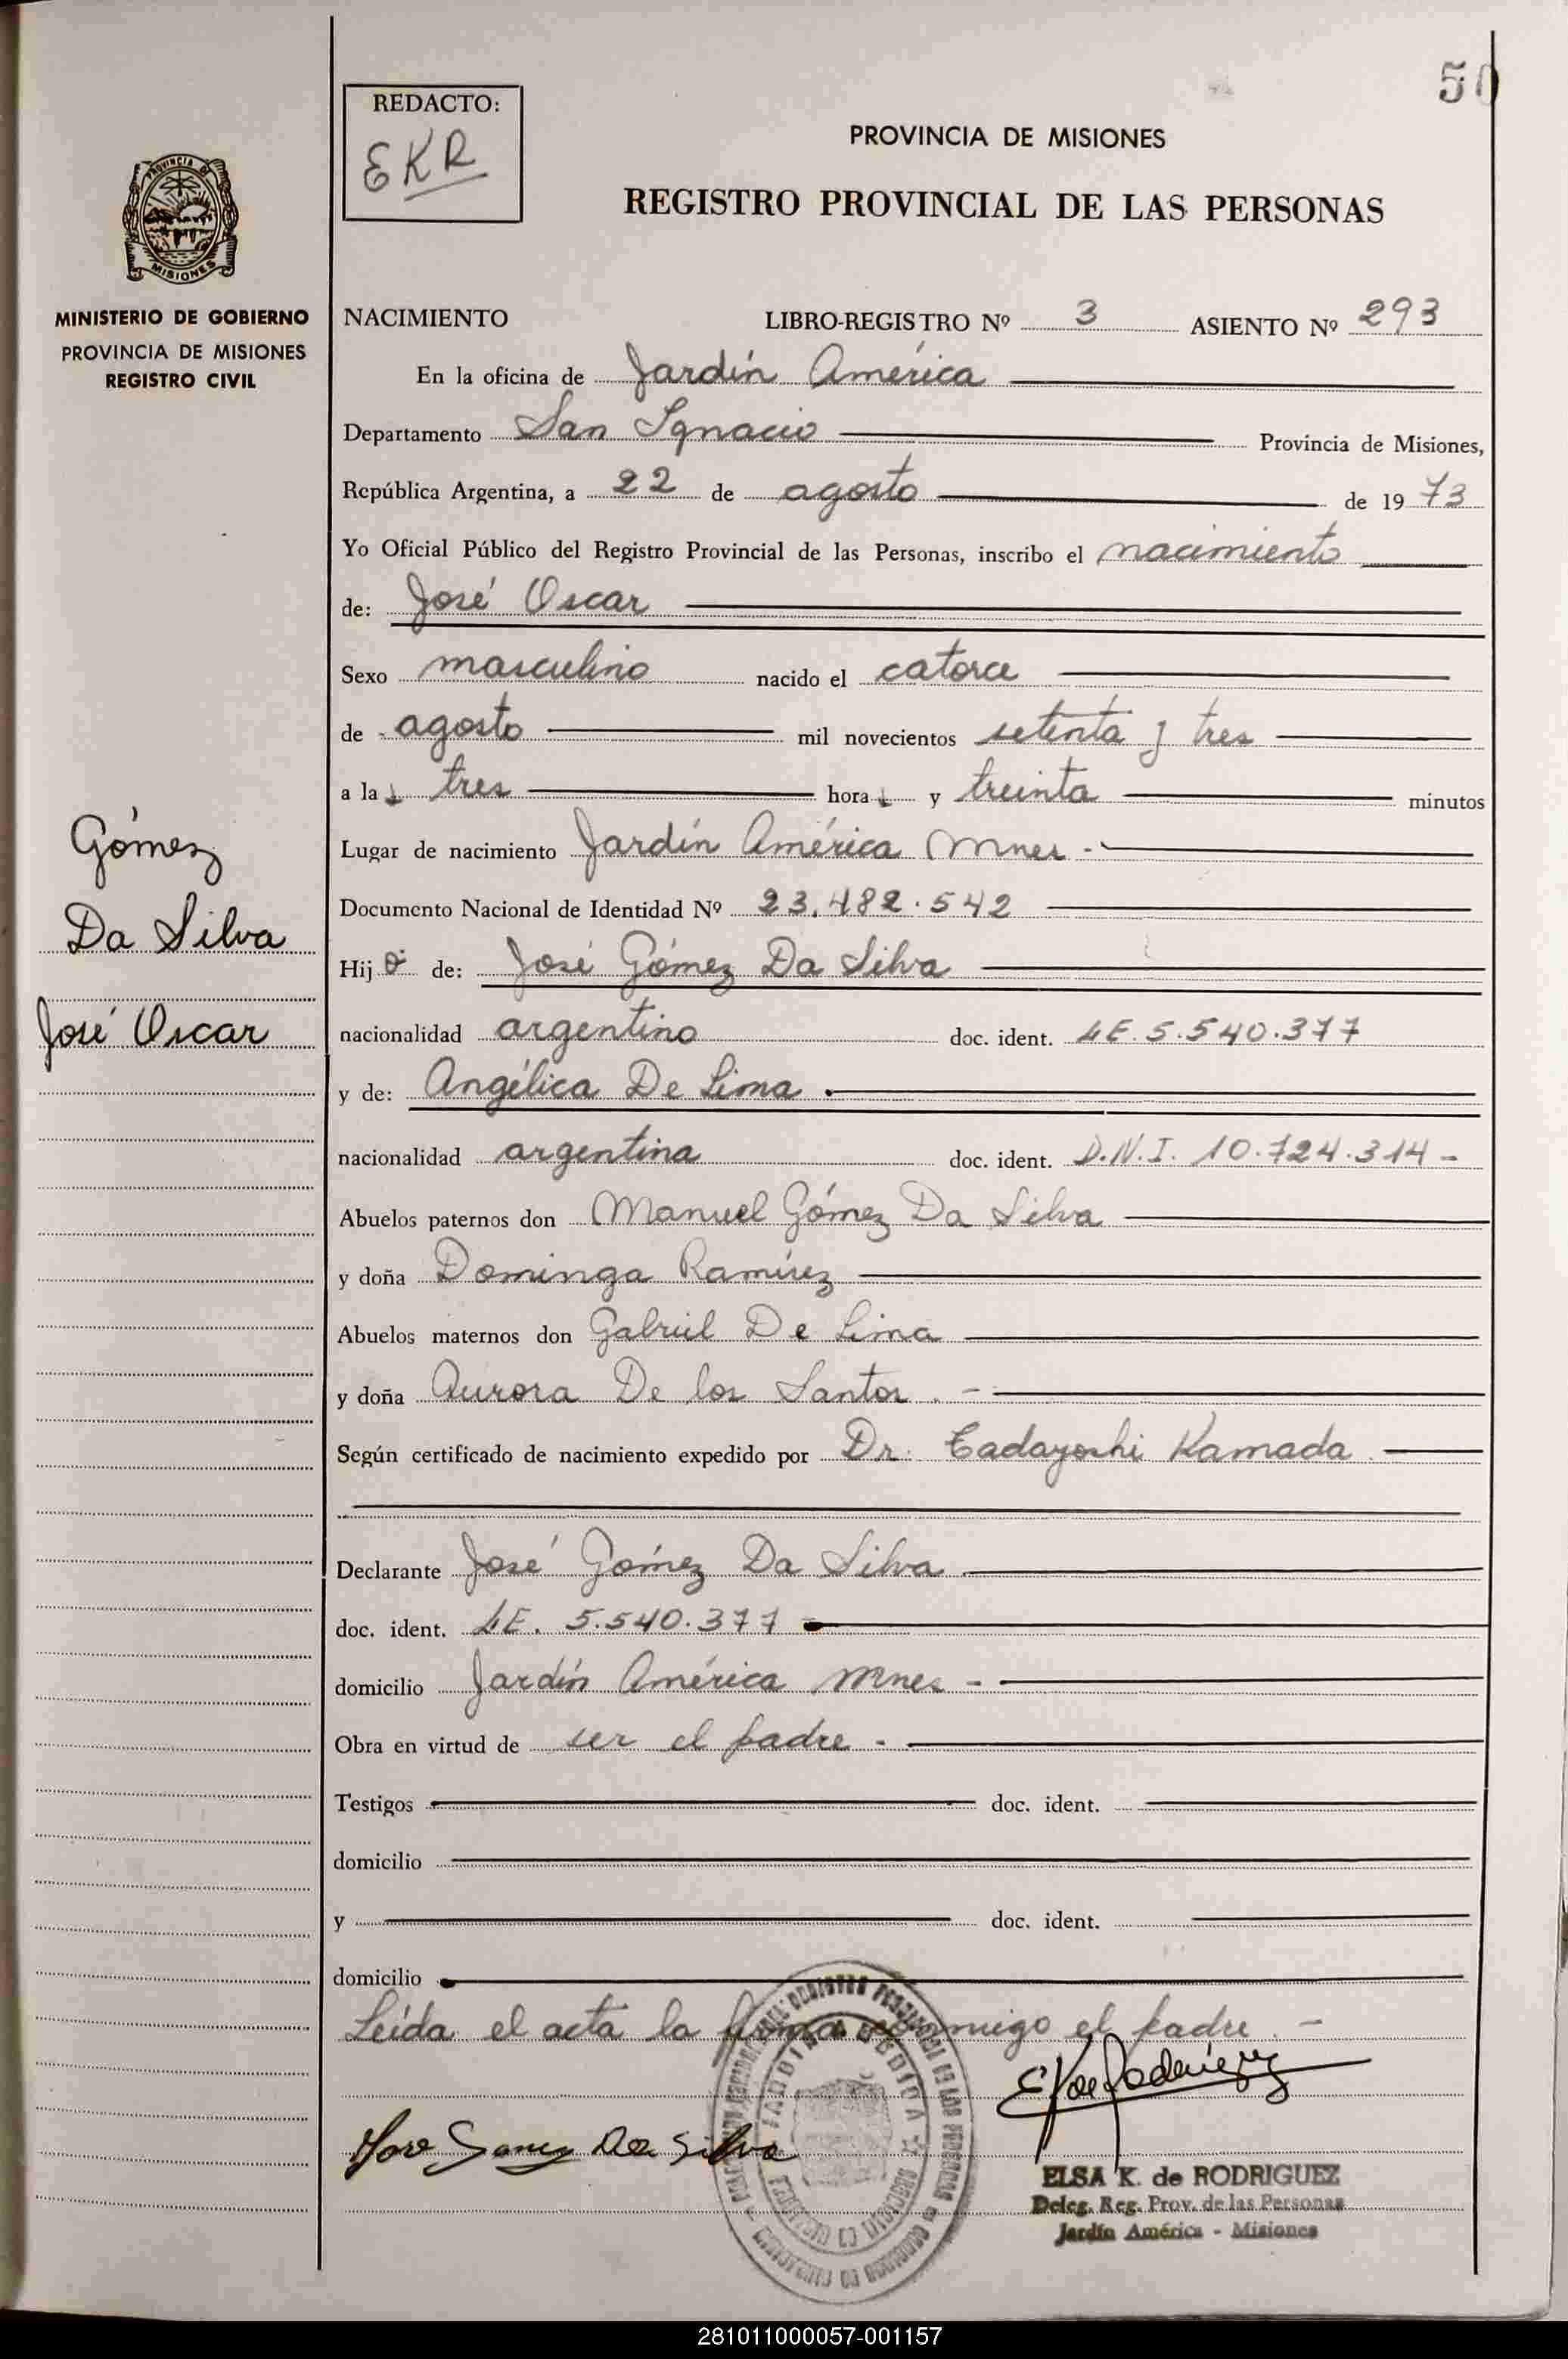 50
REDACTO:
EKR
PROVINCIA DE MISIONES
REGISTRO PROVINCIAL DE LAS PERSONAS
PROVINCIA DE
MISIONES
MINISTERIO DE GOBIERNO
PROVINCIA DE MISIONES
REGISTRO CIVIL
NACIMIENTO LIBRO-REGISTRO Nº 3 ASIENTO Nº 293
En la oficina de Jardín América
Departamento San Ignacio Provincia de Misiones,
República Argentina, a 22 de agosto de 1973
Yo Oficial Público del Registro Provincial de las Personas, inscribo el nacimiento
de: José Oscar
Sexo masculino nacido el catorce
de agosto mil novecientos setenta y tres
a las tres horas y treinta minutos
Lugar de nacimiento Jardín América Mnes -
Documento Nacional de Identidad Nº 23.482.542
Gómez
Da Silva
José Oscar
Hijo de: José Gómez Da Silva
nacionalidad argentino doc. ident. LE. 5.540.377
y de: Angélica De Lima
nacionalidad argentina doc. ident. D.N.I. 10.724.314 -
Abuelos paternos don Manuel Gómez Da Silva
y doña Dominga Ramírez
Abuelos maternos don Gabriel De Lima
y doña Aurora De los Santos . -
Según certificado de nacimiento expedido por Dr. Tadayoshi Kamada
Declarante José Gómez Da Silva
doc. ident. LE. 5.540.377
domicilio Jardín América Mnes -
Obra en virtud de ser el padre -
Testigos doc. ident.
domicilio
y doc. ident.
domicilio
Leída el acta la firma conmigo el padre . -
E K de Rodríguez
Jose Gomez Da Silva
ELSA K. de RODRIGUEZ
Deleg. Reg. Prov. de las Personas
Jardín América - Misiones
281011000057-001157